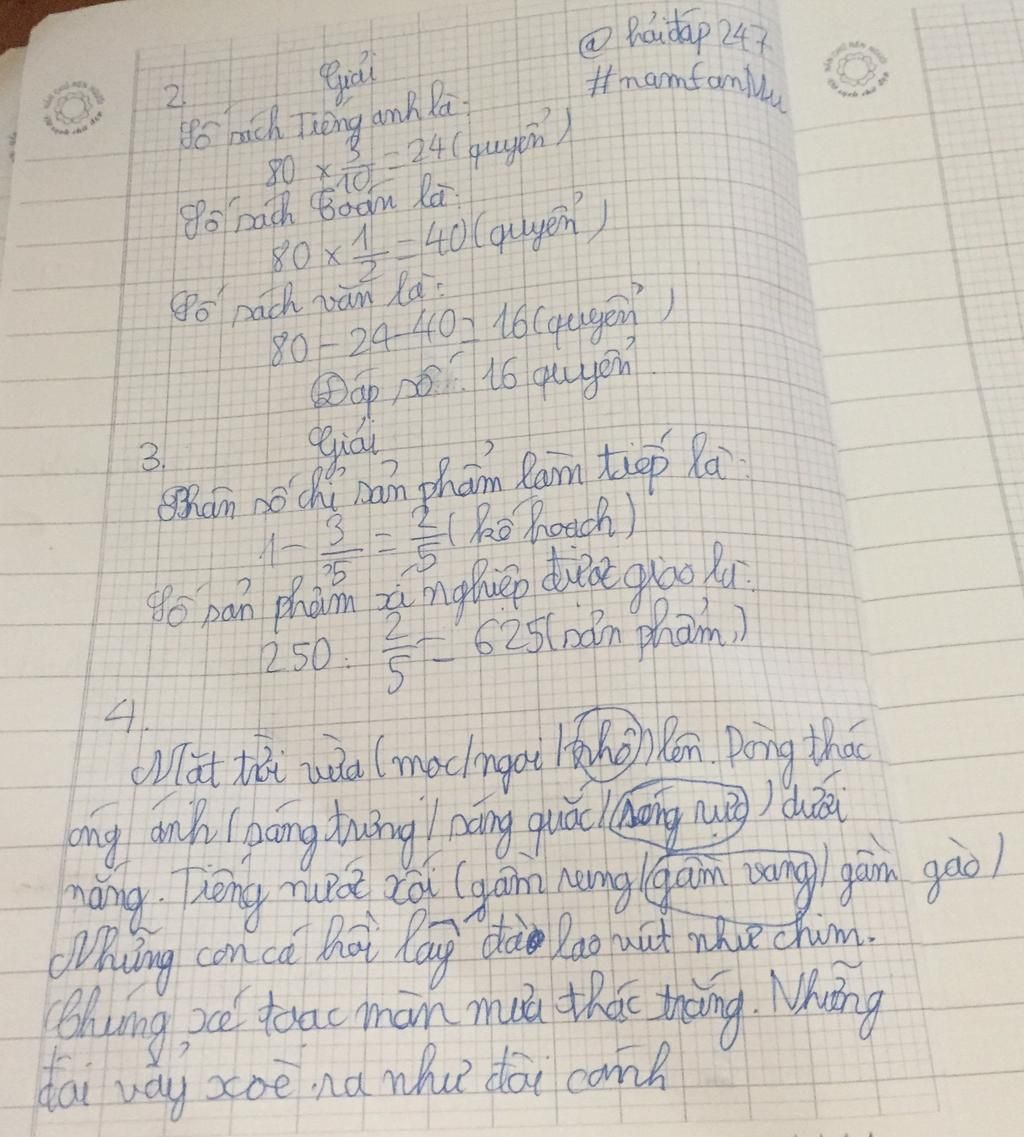 @ hỏi đáp 247
#namfanMu
2. Giải
Số sách Tiếng anh là:
80 × 3/10 = 24 (quyển)
Số sách Toán là:
80 × 1/2 = 40 (quyển)
Số sách văn là:
80 - 24 - 40 = 16 (quyển)
Đáp số: 16 quyển
3. Giải
Phân số chỉ sản phẩm làm tiếp là:
1 - 3/5 = 2/5 (kế hoạch)
Số sản phẩm xí nghiệp được giao là:
250 : 2/5 = 625 (sản phẩm)
4.
Mặt trời vừa (mọc/ngoi/nhô) lên. Dòng thác
óng ánh (sáng trưng/sáng quắc/sáng rực) dưới
nắng. Tiếng nước xối (gầm rung/gầm vang/gầm gào)
Những con cá hồi lấy đà lao vút như chim.
Chúng xé toạc màn mưa thác trắng. Những
đôi vây xoè ra như đôi cánh